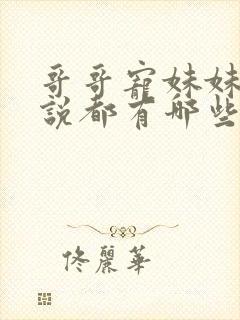 哥哥寵妹妹
說都有哪些
佟麗華